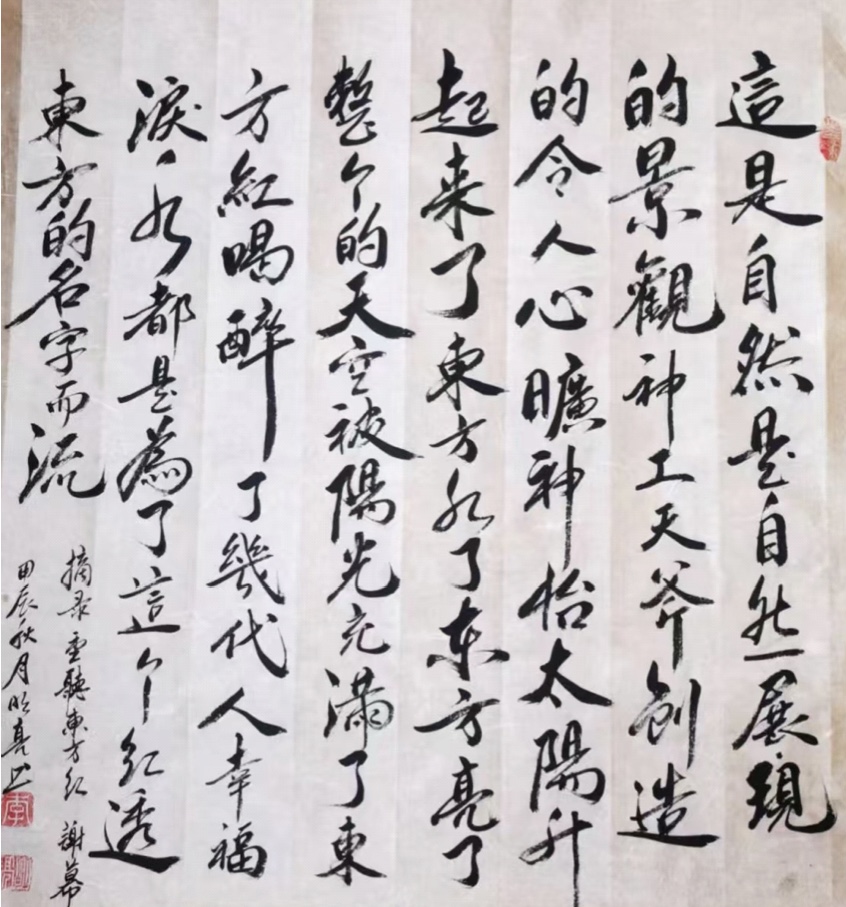 這是自然是自然展現
的景觀神工天斧創造
的令人心曠神怡太陽升
起来了東方了东方亮了
整个的天空被陽光充滿了東
方紅喝醉了幾代人幸福
淚水都是為了這个红透
東方的名字而流
摘录重聽東方红 謝幕
甲辰秋月明亮书
李